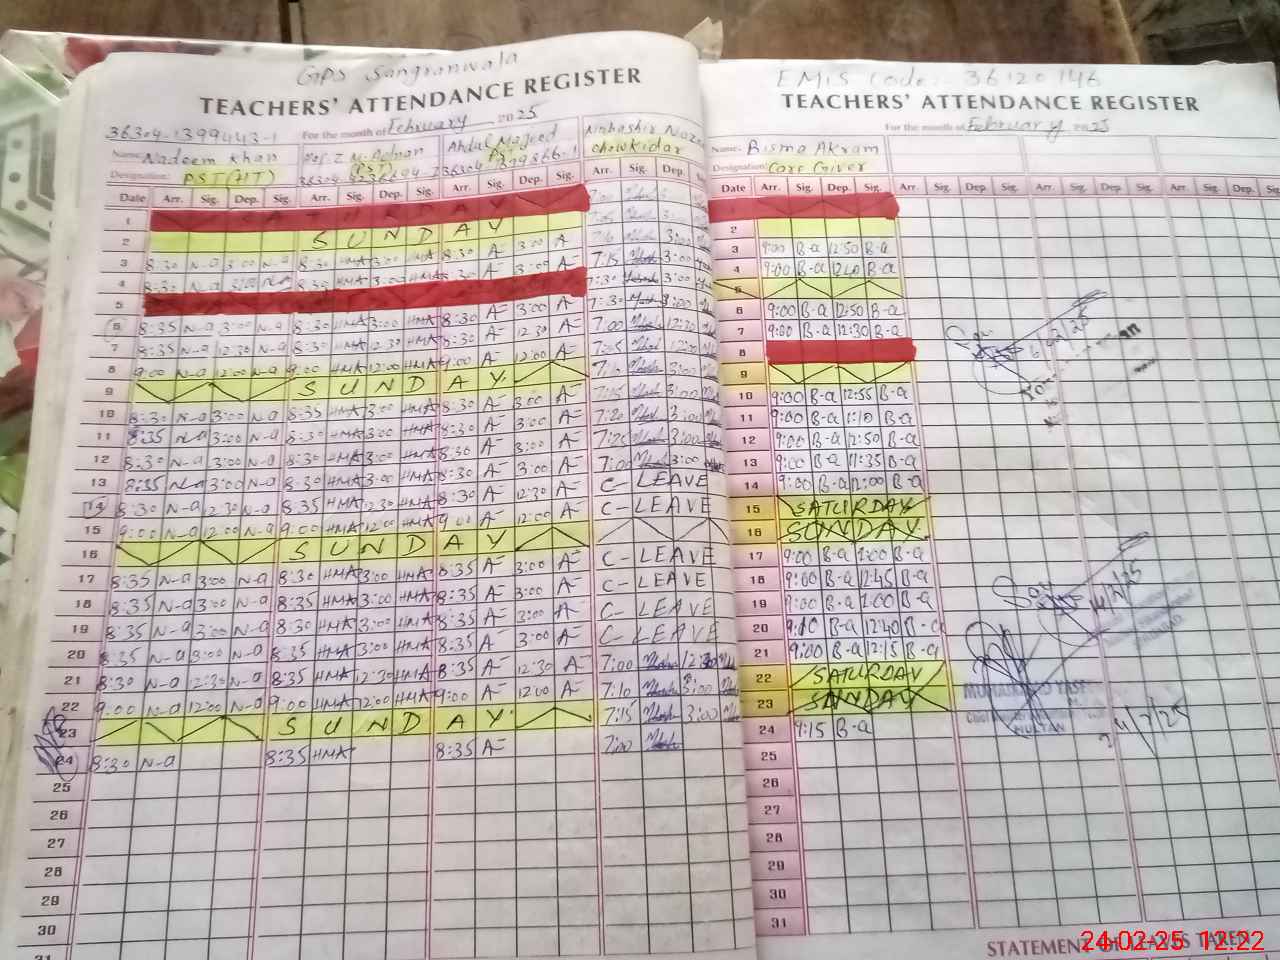 GPS Sangranwala
TEACHERS' ATTENDANCE REGISTER
36304-1399443-1
For the month of February 2025
Name: Nadeem Khan
Abdul Majeed
Designation: PST(HT)
(PST)
Chowkidar
Date Arr. Sig. Dep. Sig. Arr. Sig. Dep. Sig. Arr. Sig. Dep. Sig. Arr. Sig. Dep. Sig.
1
2 SUNDAY
3 8:30 N-a 3:00 N-a 8:30 HMA 3:00 HMA 8:30 A 3:00 A 7:15 3:00
4 8:30 N-a 3:00 N-a 8:30 HMA 3:00 HMA 8:30 A 3:00 A 7:30 3:00
5 7:30 3:00
6 8:35 N-a 3:00 N-a 8:30 HMA 3:00 HMA 8:30 A 3:00 A 7:00
7 8:35 N-a 12:30 N-a 8:30 HMA 12:30 HMA 8:30 A 12:30 A 7:05
8 9:00 N-a 12:00 N-a 9:00 HMA 12:00 HMA 9:00 A 12:00 A 7:10 3:00
9 SUNDAY 7:15 3:00
10 8:30 N-a 3:00 N-a 8:35 HMA 3:00 HMA 8:30 A 3:00 A 7:20 3:00
11 8:35 N-a 3:00 N-a 8:30 HMA 3:00 HMA 8:30 A 3:00 A 7:20 3:00
12 8:30 N-a 3:00 N-a 8:30 HMA 3:00 HMA 8:30 A 3:00 A 7:00 3:00
13 8:35 N-a 3:00 N-a 8:30 HMA 3:00 HMA 8:30 A 3:00 A C-LEAVE
14 8:30 N-a 12:30 N-a 8:35 HMA 12:30 HMA 8:30 A 12:30 A C-LEAVE
15 9:00 N-a 12:00 N-a 9:00 HMA 12:00 HMA 9:00 A 12:00 A
16 SUNDAY C-LEAVE
17 8:35 N-a 3:00 N-a 8:30 HMA 3:00 HMA 8:35 A 3:00 A C-LEAVE
18 8:35 N-a 3:00 N-a 8:35 HMA 3:00 HMA 8:35 A 3:00 A C-LEAVE
19 8:35 N-a 3:00 N-a 8:30 HMA 3:00 HMA 8:35 A 3:00 A C-LEAVE
20 8:35 N-a 3:00 N-a 8:35 HMA 3:00 HMA 8:35 A 3:00 A 7:00 12:30
21 8:30 N-a 12:30 N-a 8:35 HMA 12:30 HMA 8:35 A 12:30 A 7:10 3:00
22 9:00 N-a 12:00 N-a 9:00 HMA 12:00 HMA 9:00 A 12:00 A 7:15 3:00
23 SUNDAY 7:00
24 8:30 N-a 8:35 HMA 8:35 A
25
26
27
28
29
30
31
EMIS Code:- 36120146
TEACHERS' ATTENDANCE REGISTER
For the month of February 2025
Name: Bisma Akram
Designation: Care Giver
Date Arr. Sig. Dep. Sig. Arr. Sig. Dep. Sig. Arr. Sig. Dep. Sig. Arr. Sig. Dep. Sig.
1
2
3 9:00 B-a 12:50 B-a
4 9:00 B-a 12:40 B-a
5
6 9:00 B-a 12:50 B-a
7 9:00 B-a 12:30 B-a
8
9
10 9:00 B-a 12:55 B-a
11 9:00 B-a 1:10 B-a
12 9:00 B-a 12:50 B-a
13 9:00 B-a 11:35 B-a
14 9:00 B-a 12:00 B-a
15 SATURDAY
16 SUNDAY
17 9:00 B-a 1:00 B-a
18 9:00 B-a 12:45 B-a
19 9:00 B-a 1:00 B-a
20 9:10 B-a 12:40 B-a
21 9:00 B-a 12:15 B-a
22 SATURDAY
23 SANDAY
24 9:15 B-a
25
26
27
28
29
30
31
MULTAN
STATEMENT OF LEAVES TAKEN
24-02-25 12:22